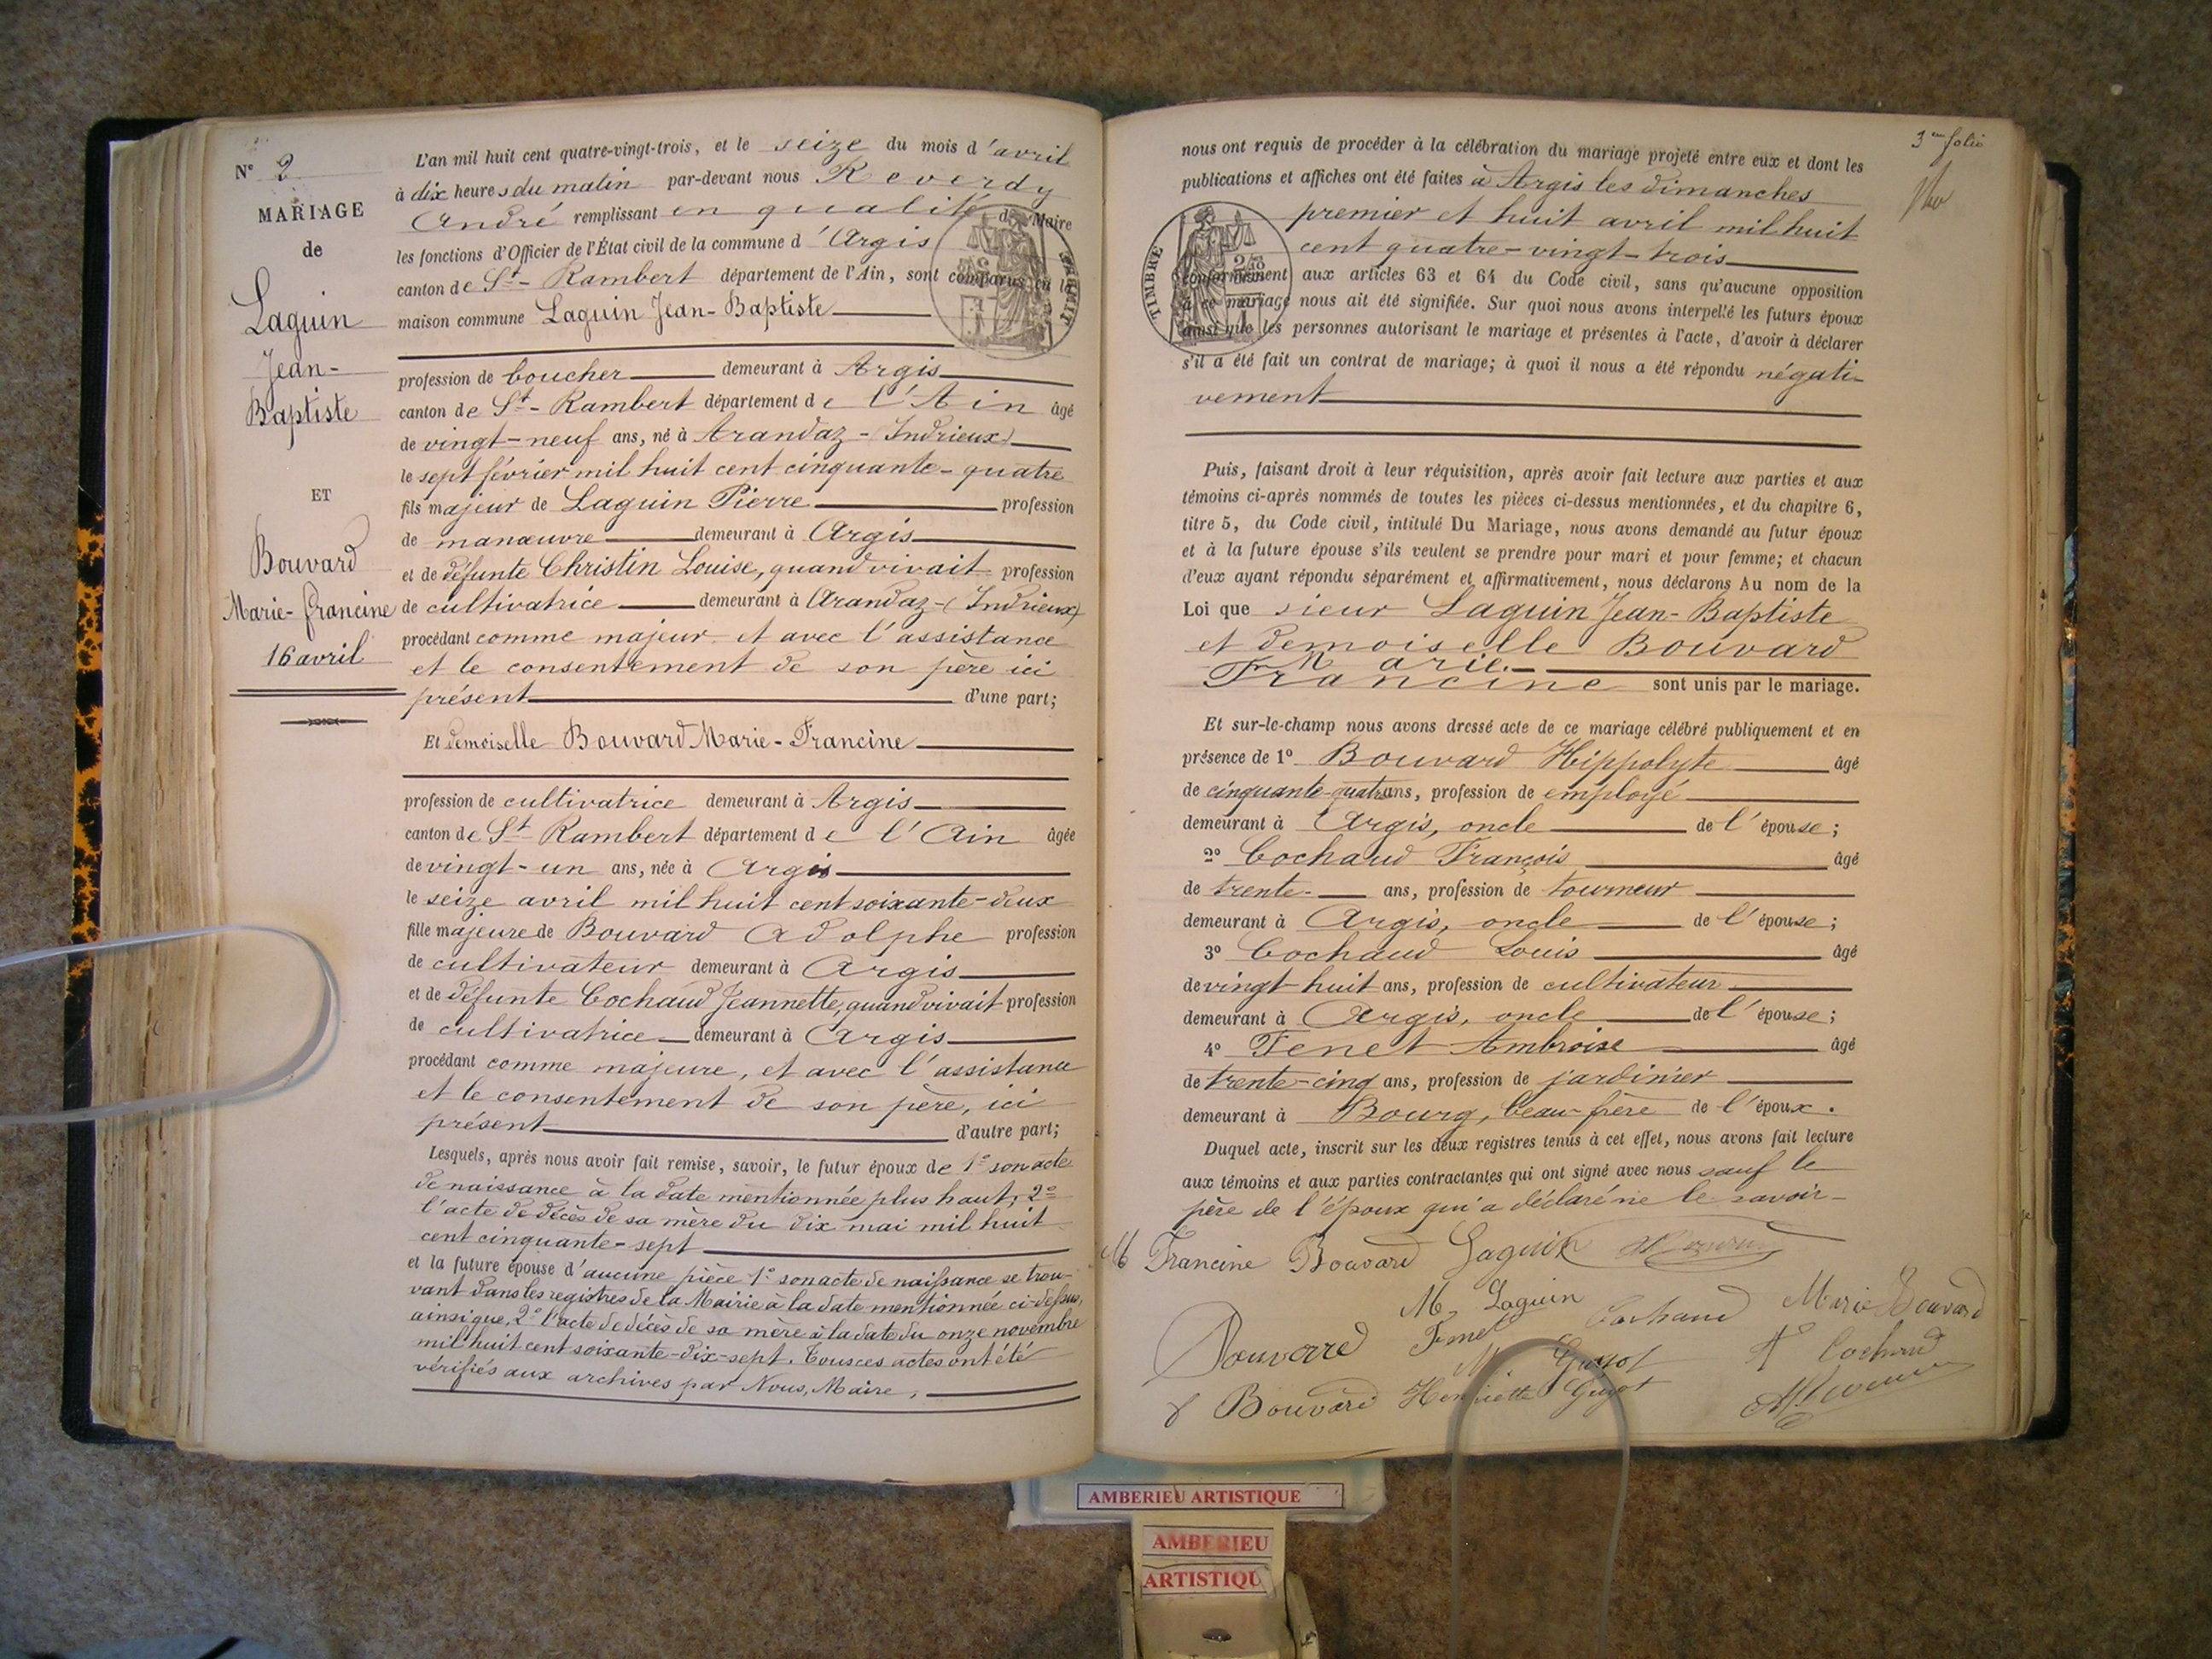 N° 2
MARIAGE
de
Laguin
Jean-
Baptiste
ET
Bouvard
Marie-Francine
16 avril
L'an mil huit cent quatre-vingt-trois, et le seize du mois d'avril
à dix heures du matin par-devant nous Reverdy
André remplissant en qualité de Maire
les fonctions d'Officier de l'État civil de la commune d'Argis
canton de St-Rambert département de l'Ain, sont comparus en la
maison commune Laguin Jean-Baptiste
profession de boucher demeurant à Argis
canton de St-Rambert département de l'Ain âgé
de vingt-neuf ans, né à Arandaz-(Indrieux)
le sept février mil huit cent cinquante-quatre
fils majeur de Laguin Pierre profession
de manœuvre demeurant à Argis
et de défunte Christin Louise, quand vivait profession
de cultivatrice demeurant à Arandaz-(Indrieux)
procédant comme majeur et avec l'assistance
et le consentement de son père ici
présent d'une part;
Et demoiselle Bouvard Marie-Francine
profession de cultivatrice demeurant à Argis
canton de St Rambert département de l'Ain âgée
de vingt-un ans, née à Argis
le seize avril mil huit cent soixante-deux
fille majeure de Bouvard Adolphe profession
de cultivateur demeurant à Argis
et de défunte Cochaud Jeannette, quand vivait profession
de cultivatrice demeurant à Argis
procédant comme majeure, et avec l'assistance
et le consentement de son père, ici
présent d'autre part;
Lesquels, après nous avoir fait remise, savoir, le futur époux de 1° son acte
de naissance à la date mentionnée plus haut; 2°
l'acte de décès de sa mère du dix mai mil huit
cent cinquante-sept
et la future épouse d'aucune pièce 1° son acte de naissance se trou-
vant dans les registres de la Mairie à la date mentionnée ci-dessus,
ainsi que, 2° l'acte de décès de sa mère à la date du onze novembre
mil huit cent soixante-dix-sept. Tous ces actes ont été
vérifiés aux archives par Nous, Maire,
3me folio
nous ont requis de procéder à la célébration du mariage projeté entre eux et dont les
publications et affiches ont été faites à Argis les dimanches
premier et huit avril mil huit
cent quatre-vingt-trois
TIMBRE
conformément aux articles 63 et 64 du Code civil, sans qu'aucune opposition
à ce mariage nous ait été signifiée. Sur quoi nous avons interpellé les futurs époux
ainsi que les personnes autorisant le mariage et présentes à l'acte, d'avoir à déclarer
s'il a été fait un contrat de mariage; à quoi il nous a été répondu négati-
vement
Puis, faisant droit à leur réquisition, après avoir fait lecture aux parties et aux
témoins ci-après nommés de toutes les pièces ci-dessus mentionnées, et du chapitre 6,
titre 5, du Code civil, intitulé Du Mariage, nous avons demandé au futur époux
et à la future épouse s'ils veulent se prendre pour mari et pour femme; et chacun
d'eux ayant répondu séparément et affirmativement, nous déclarons Au nom de la
Loi que sieur Laguin Jean-Baptiste
et demoiselle Bouvard
Marie-
Francine sont unis par le mariage.
Et sur-le-champ nous avons dressé acte de ce mariage célébré publiquement et en
présence de 1° Bouvard Hippolyte âgé
de cinquante-quatre ans, profession de employé
demeurant à Argis, oncle de l'épouse;
2° Cochaud François âgé
de trente- ans, profession de tourneur
demeurant à Argis, oncle de l'épouse;
3° Cochaud Louis âgé
de vingt huit ans, profession de cultivateur
demeurant à Argis, oncle de l'épouse;
4° Fenet Ambroise âgé
de trente-cinq ans, profession de jardinier
demeurant à Bourg, beau-frère de l'époux.
Duquel acte, inscrit sur les deux registres tenus à cet effet, nous avons fait lecture
aux témoins et aux parties contractantes qui ont signé avec nous sauf le
père de l'époux qui a déclaré ne le savoir-
M Francine Bouvard Laguin
M. Laguin Cochaud Marie Bouvard
Bouvard Fenet
M. Guyot F Cochaud
Bouvard Henriette Guyot
AMBERIEU ARTISTIQUE
AMBERIEU
ARTISTIQU